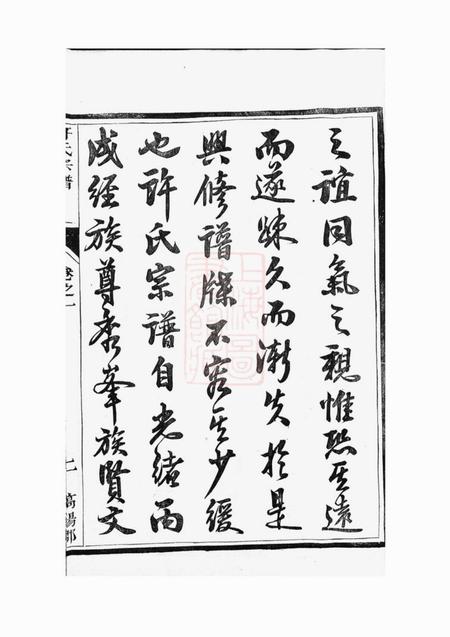 之誼同氣之親惟恐其遠
而遂踈久而漸失於是
興修譜牒不容其少緩
也許氏宗譜自光緒丙
成經族尊秀峯族賢文
許氏宗譜
卷之一
高陽郡